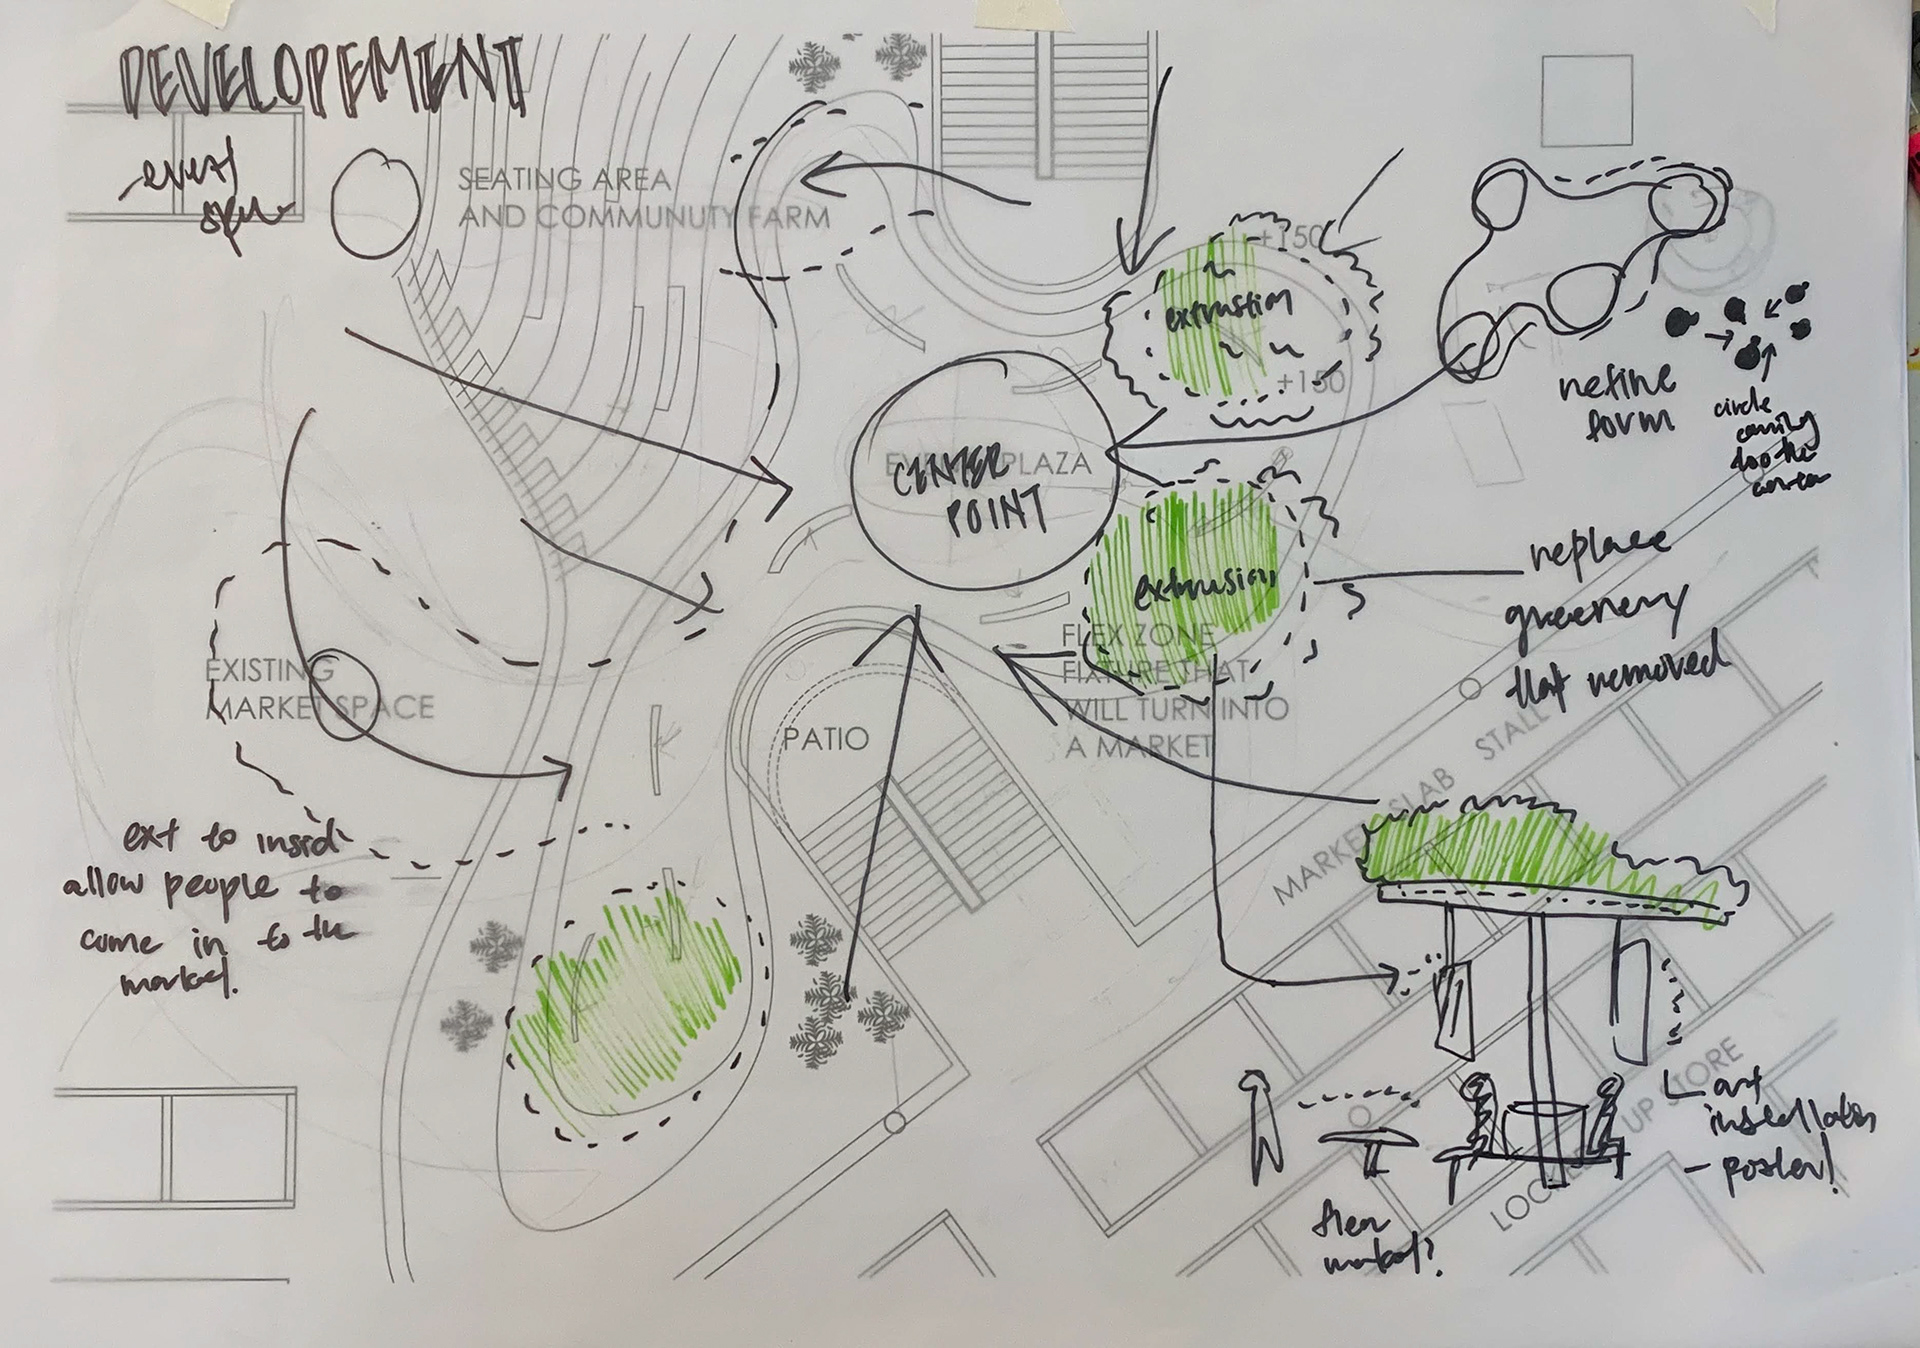 DEVELOPEMENT
event
SEATING AREA
AND COMMUNUTY FARM
+150
extrustion
+150
refine
form
circle
coming
too the
center
CENTER
POINT
PLAZA
extrusion
replace
greenery
that removed
EXISTING
MARKET SPACE
PATIO
FLEX ZONE
FIXTURE THAT
WILL TURN INTO
A MARKET
MARKET SLAB STALL
ext to insid
allow people to
come in to the
market.
LOCK UP STORE
art
installation
- poster!
flea
market?